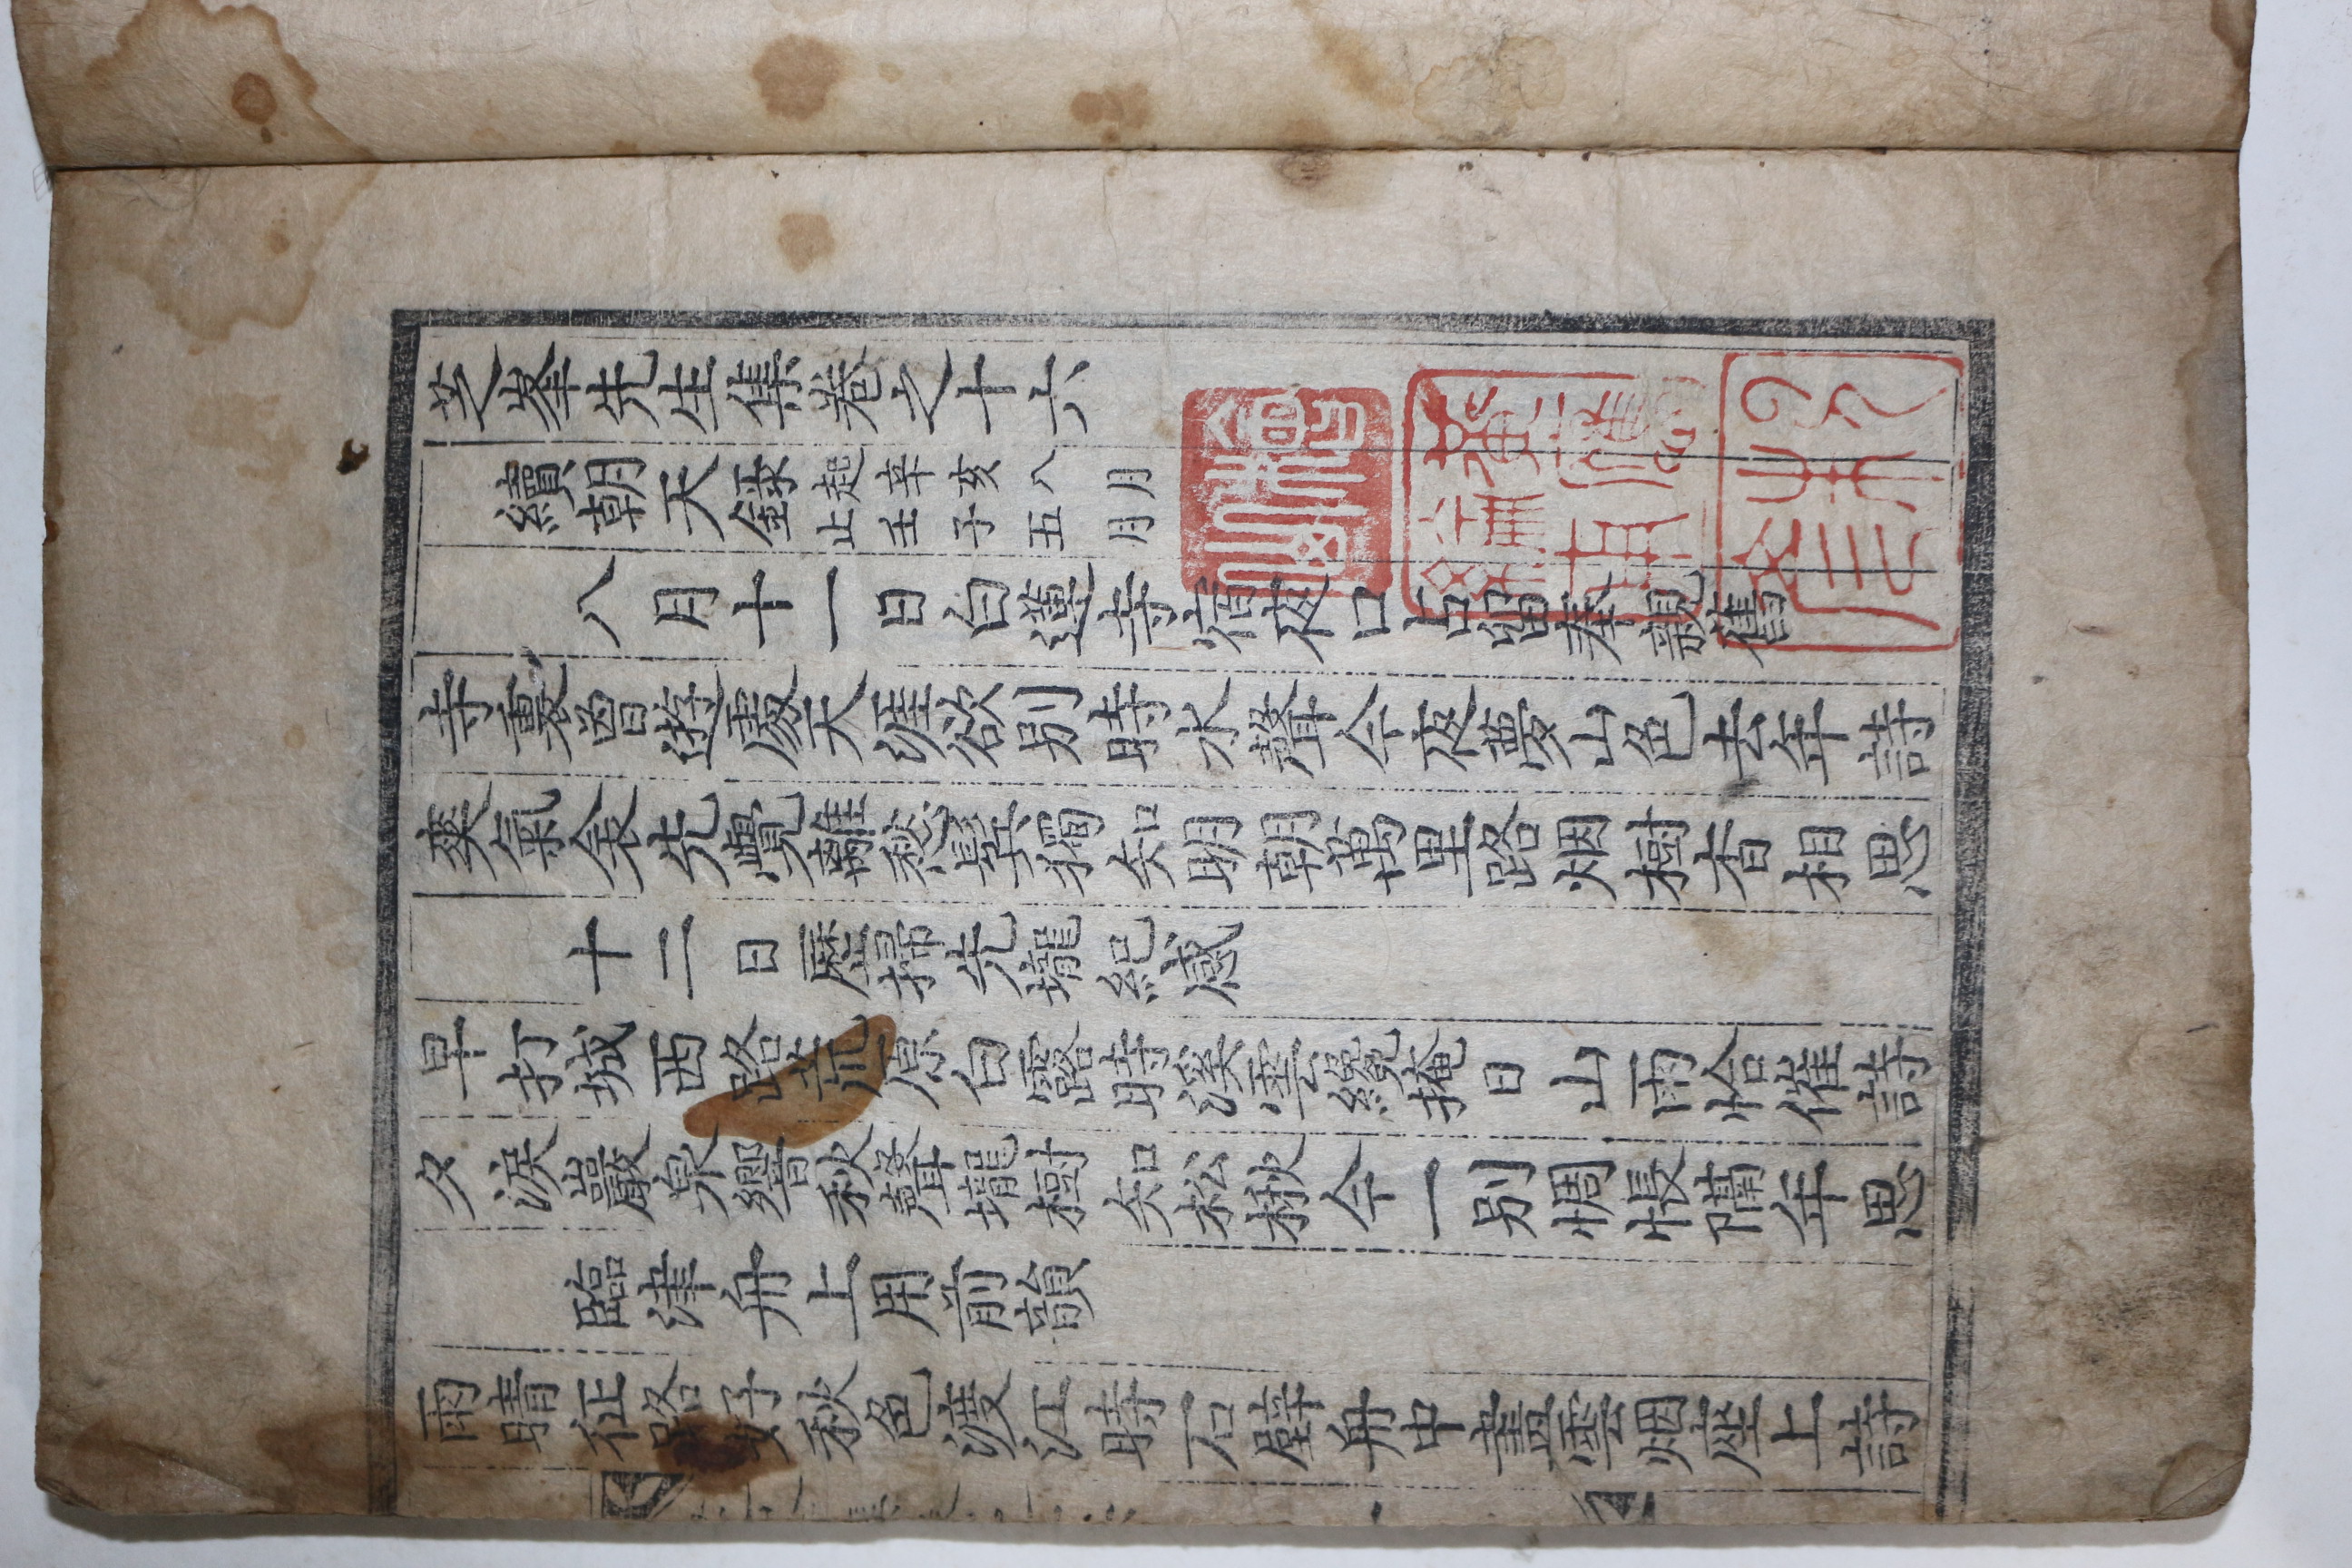 芝峯先生集卷之十六
續朝天錄起辛亥八月止壬子五月
八月十一日白蓮寺宿夜口占留奉親舊
寺裏曾遊處天涯欲別時水聲今夜夢山色去年詩
爽氣衾先覺離愁鬓獨知明朝萬里路烟樹杳相思
十二日歷掃先壠紀感
早打城西路荒原白露時溪雲纔掩日山雨恰催詩
夕淚巖泉響秋聲壠樹知松楸今一別惆悵隔年思
臨津舟上用前韻
雨晴征路好秋色渡江時石壁舟中畫雲烟座上詩